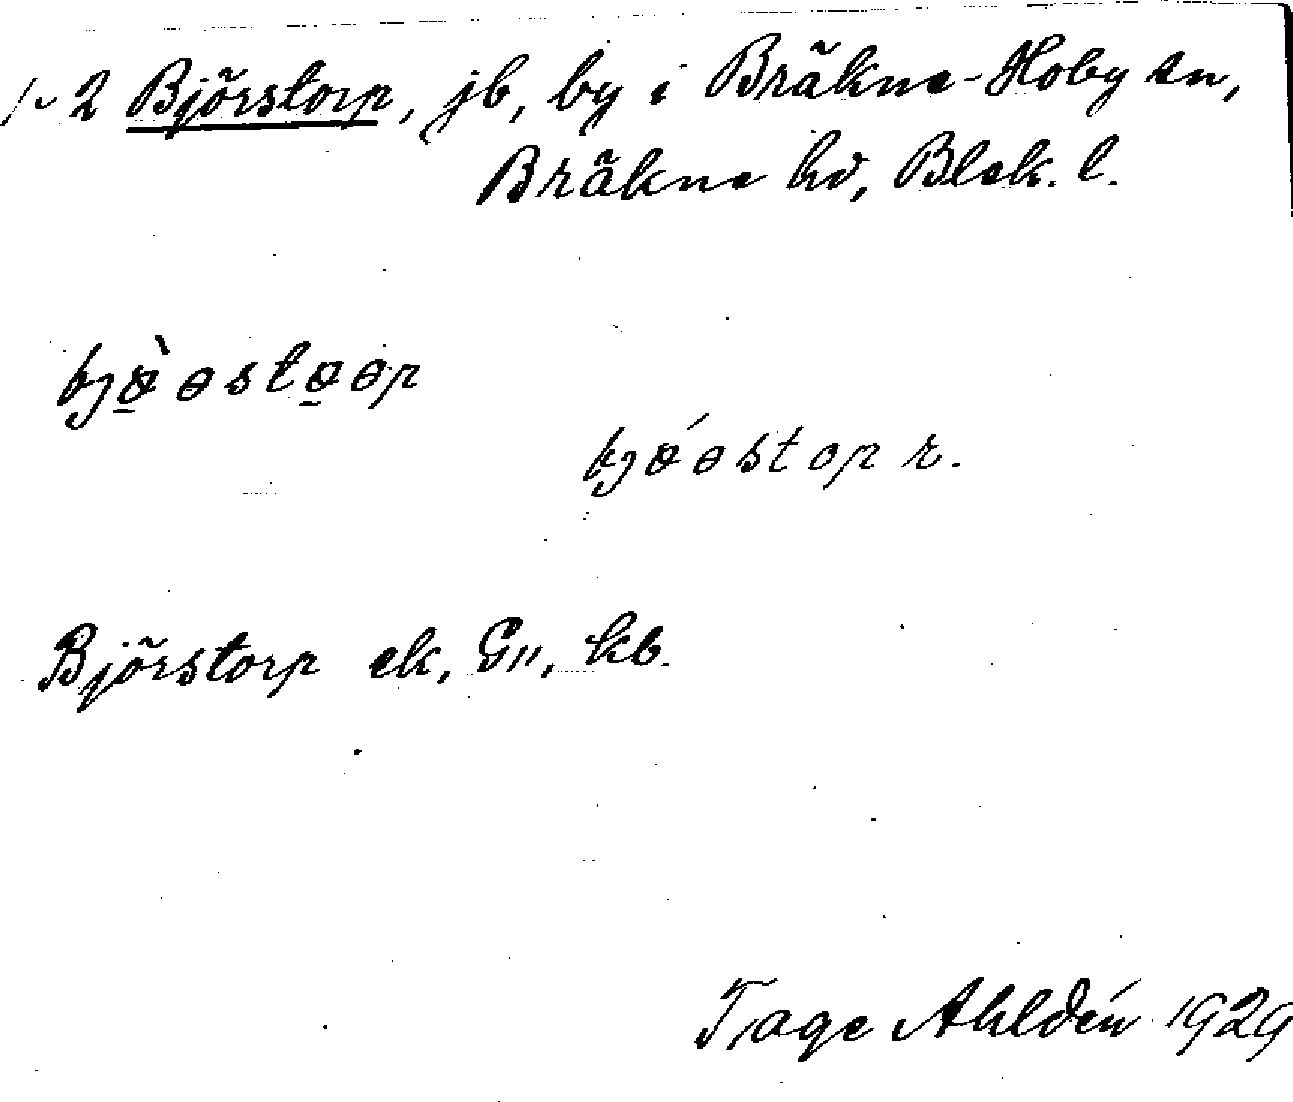 1-2 Björstorp, jb, by i Bräkne-Hoby sn,
Bräkne hd, Blek. l.
bjø̠̀əsto̠əp
bjǿəstop r.
Björstorp ek, G11, kb.
Tage Ahldén 1929